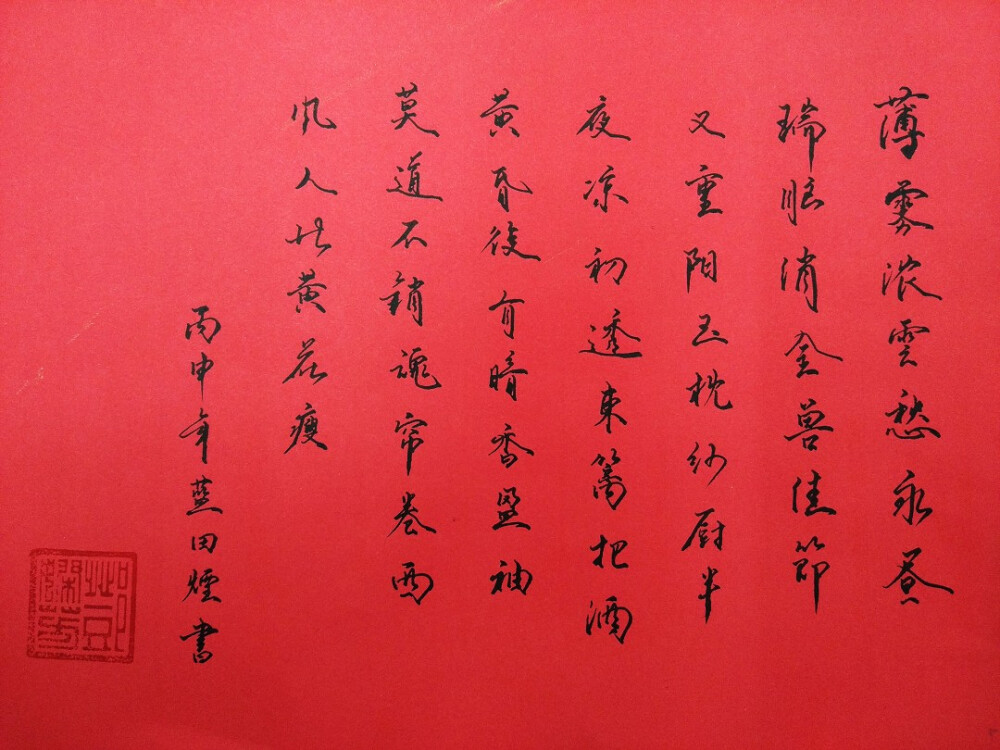 薄雾浓雲愁永昼
瑞脑消金兽佳節
又重阳玉枕纱厨半
夜凉初透東篱把酒
黄昏後有暗香盈袖
莫道不销魂帘卷西
风人比黄花瘦
丙申年蓝田煙書